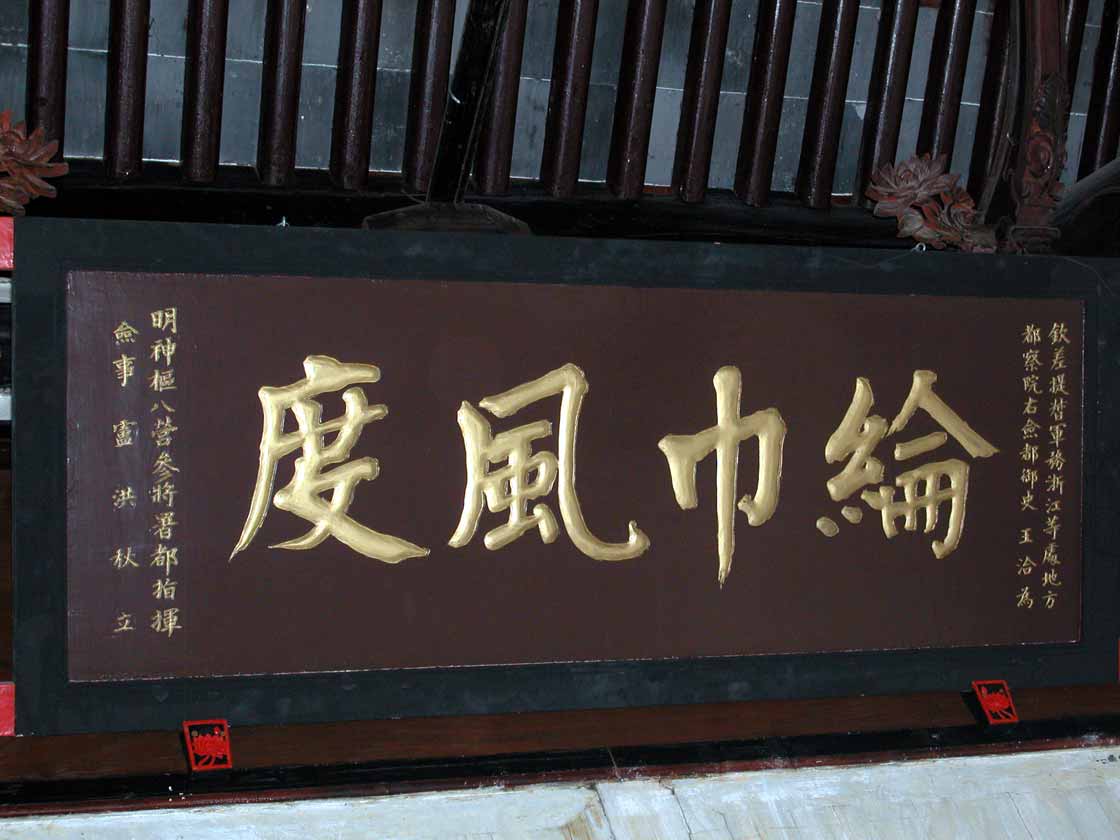 欽差提督軍務浙江等處地方
都察院右僉都御史 王洽 為
綸巾風度
明神樞八營參將署都指揮
僉事 盧 洪 秋 立